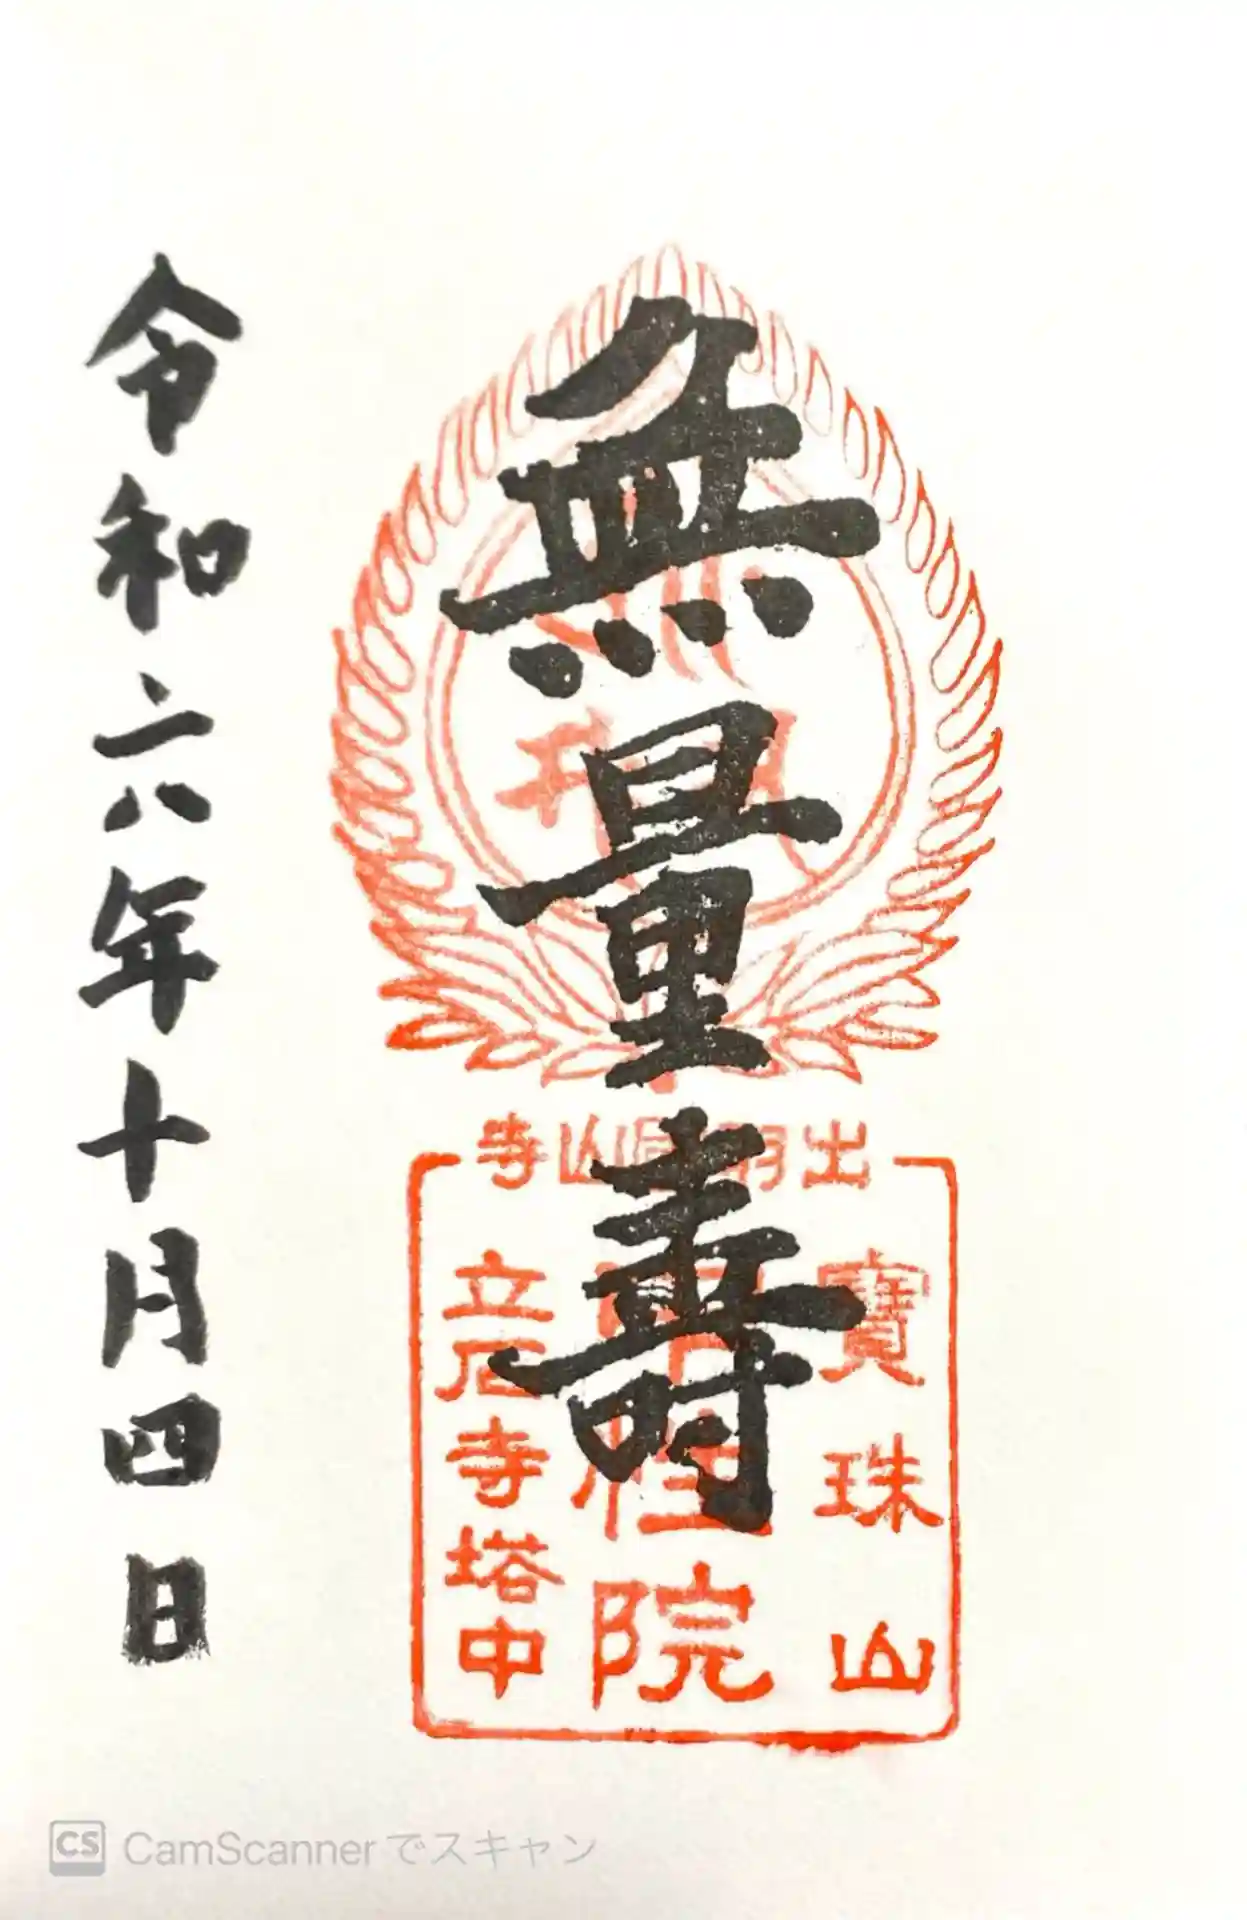 無量壽
令和六年十月四日
出羽國山寺
寶珠山
中性院
立石寺塔中
CS CamScannerでスキャン